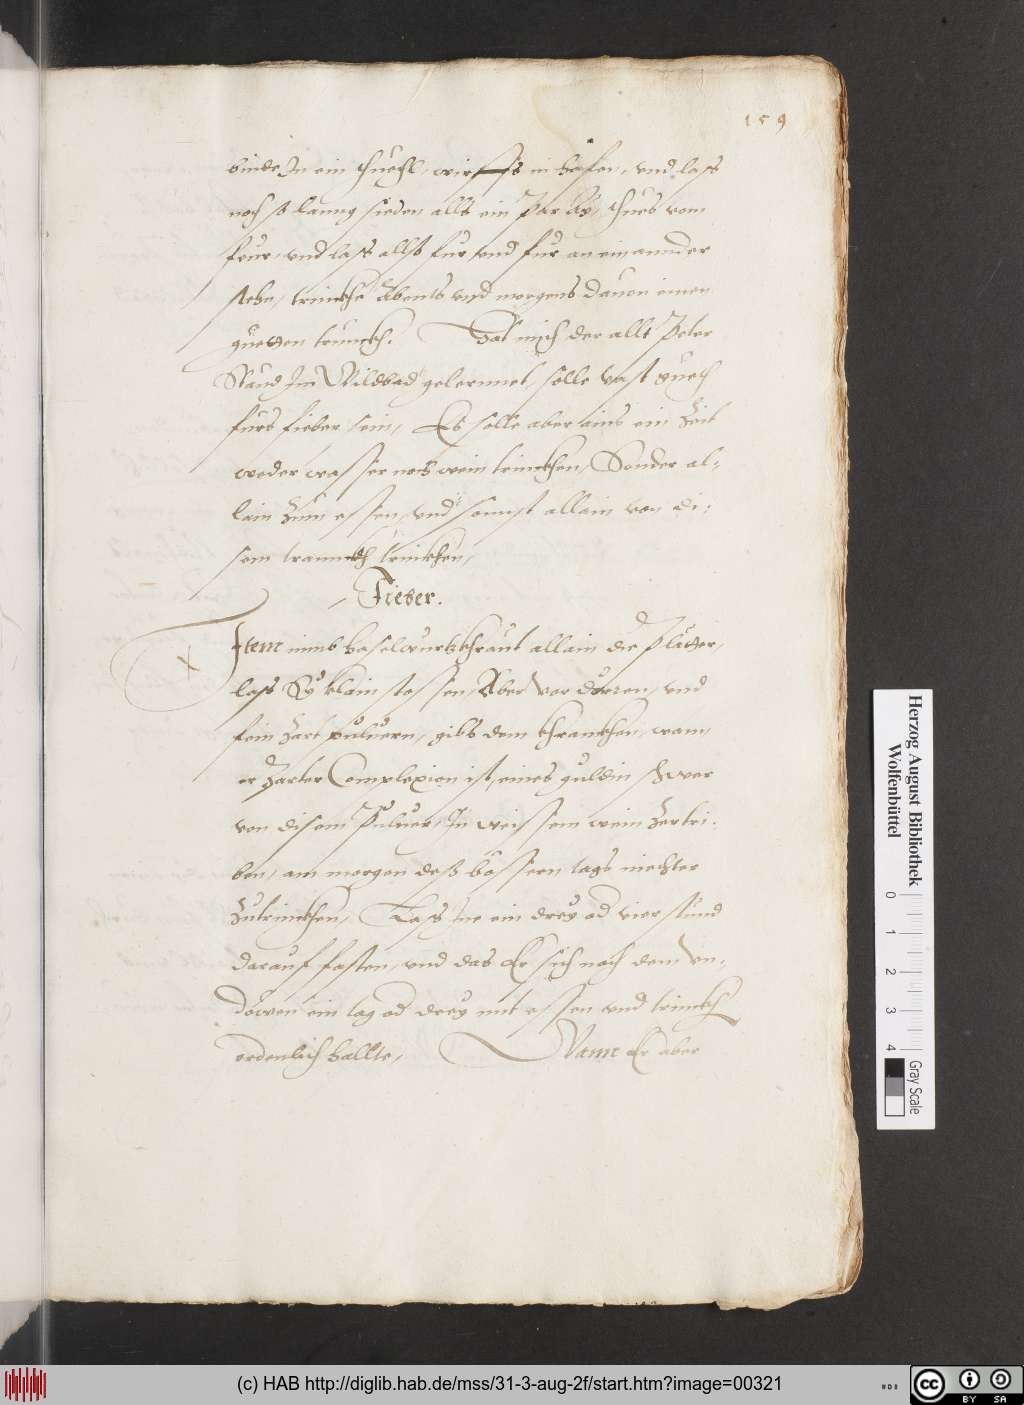 159
binds In ein thüechl, wirffs in hafen, vnd lass
noch so lanng sieden alls ein par Ay, thues vom
feur, vnd lass allso fur vnd fur an einannder
stehn, trinckh Abents vnd morgens dauon einen
guetten trunckh. Hat mich der allt Peter
Im Wildbad gelernnet, solle vast guet
furs fieber sein, Es solle aber ains ein Zeit
weder wasser noch wein trinckhen, Sonder al-
lain zum essen, vnd sonnst allain von di-
sem tranckh trinckhen,
Fieber.
Item nimb haselwurtzkhraut allain die pletter,
lass Sy klain stossen, Aber vor dörren, vnd
fein zart puluern, gibs dem khranckhen, wann
er zarter Complexion ist, eines guldin schwer
von disem Puluer, In weissem wein zertri-
ben, am morgen dess bössern tags niechter
zutrinckhen, Lass Ine ein drey od vier stund
darauf fasten, vnd das Er sich nach dem vn-
döwen ein tag od drey mit essen vnd trinckh
ordenlich hallte, Wann Er aber
Herzog August Bibliothek
Wolfenbüttel
0 1 2 3 4
Gray Scale
(c) HAB http://diglib.hab.de/mss/31-3-aug-2f/start.htm?image=00321
cc BY SA